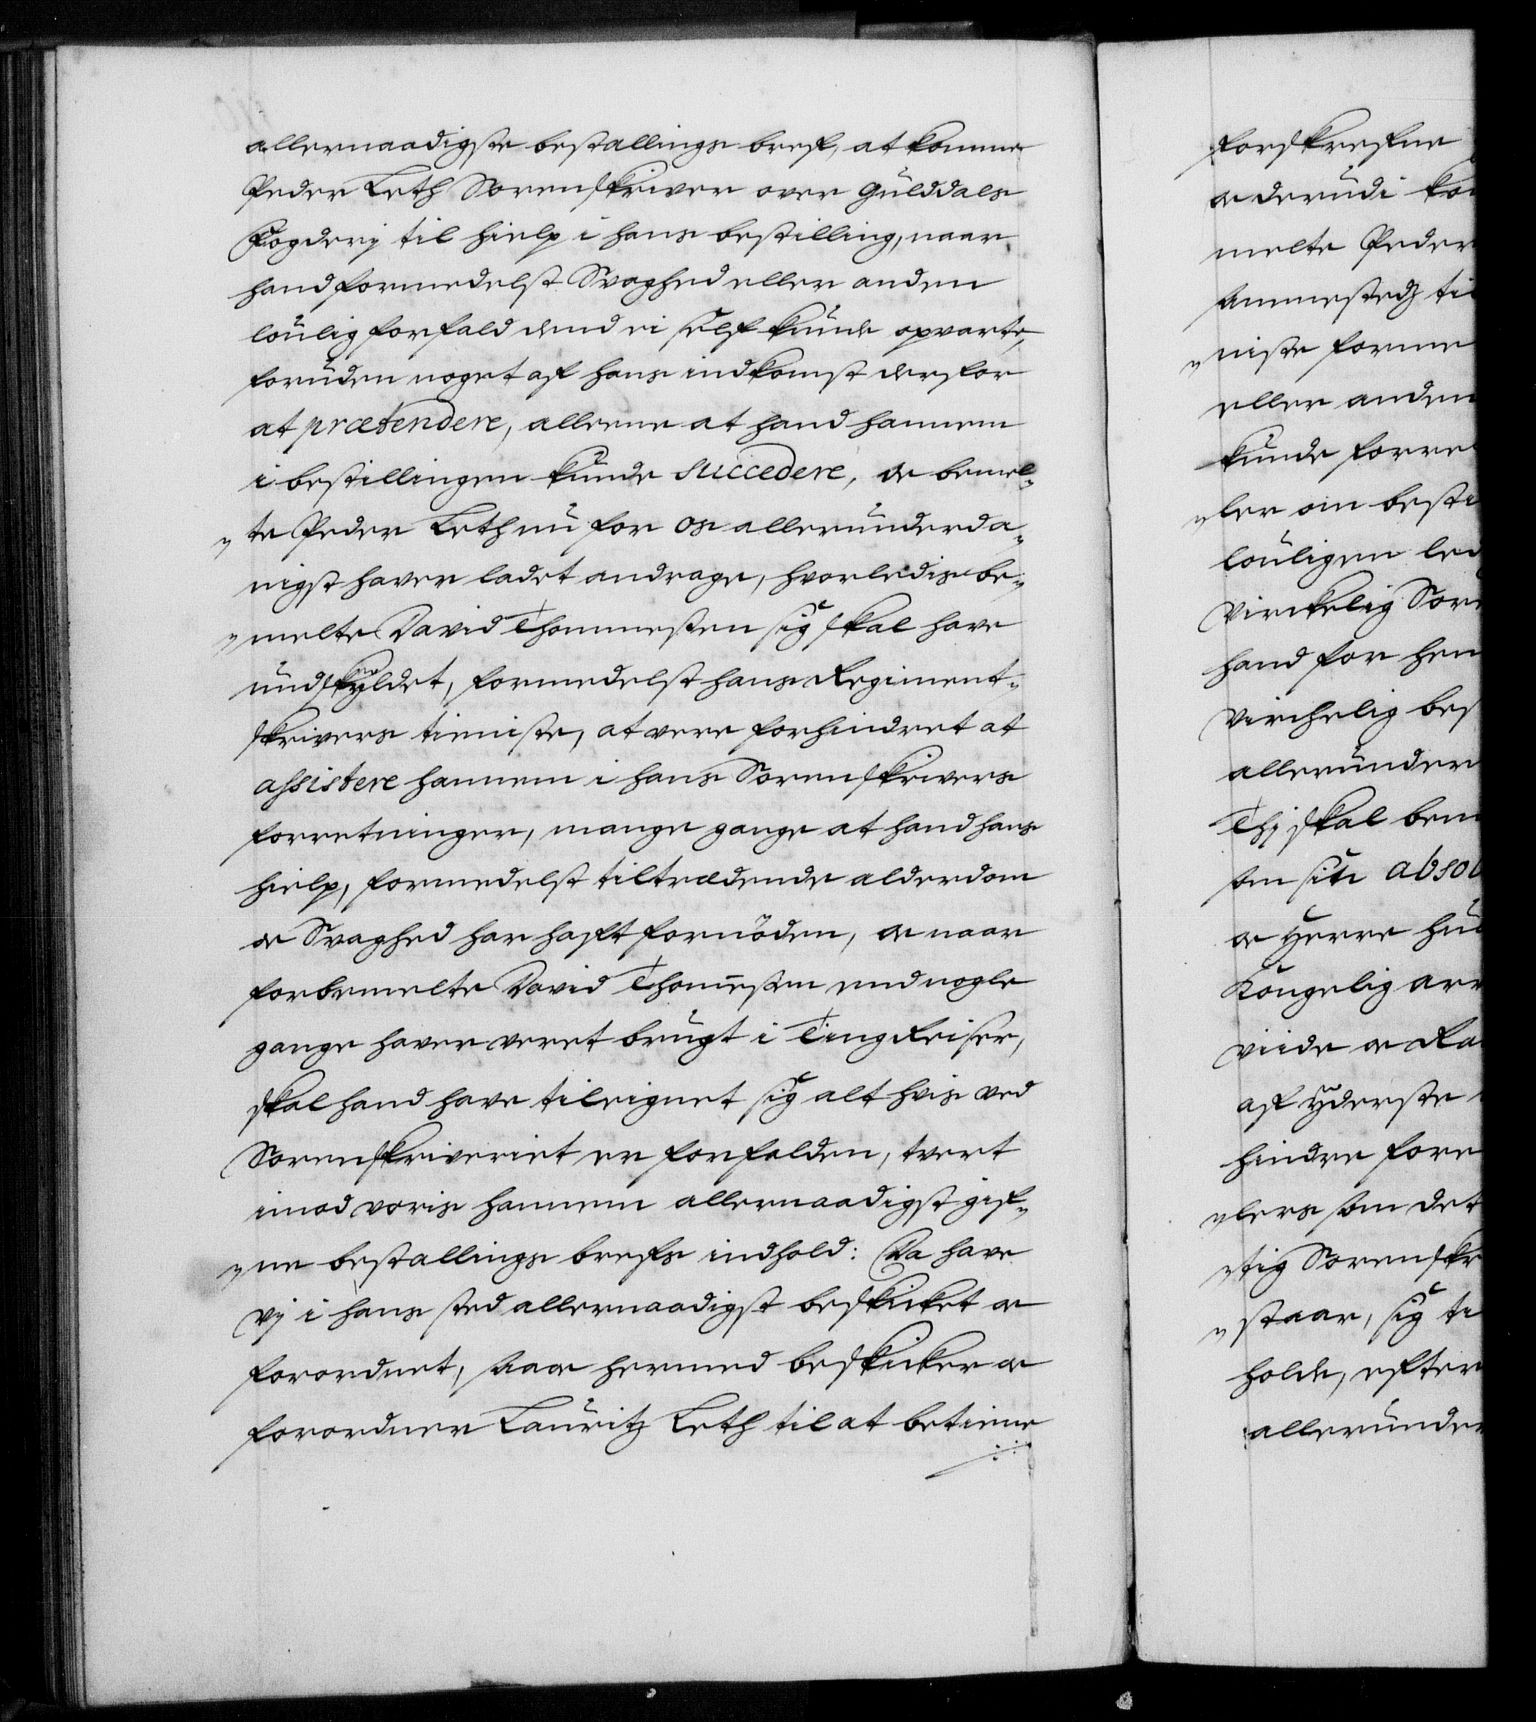 allernaadigste bestallings bref, at komme
Peder Leth Sorenskriver over Gulddals
Fogderj til hielp i hans bestilling, naar
hand formedelst Svaghed eller anden
loulig forfald dend ei self kunde opvarte,
foruden noget af hans indkomst derfor
at prætendere, alleene at hand hannem
i bestillingen kunde succedere, og bemel¬
„te Peder Leth nu for os allerunderda¬
nigst haver ladet andrage, hvorledis be¬
„melte David Thommesten sig skal have
undskyldet, formedelst hans Regiment¬
skrivers tieniste, at vere forhindret at
assistere hannem i hans Sorenskrivers
forretninger, mange gange at hand hans
hielp, formedelst tiltrædende alderdom
og Svaghed har haft fornöden, og naar
forbemelte David Thomesten end nogle
gange haver veret brugt i Ting Reiser,
skal hand have tileignet sig alt hvis ved
Sorenskriveriet er forfalden, tvert
imod voris hannem allernaadigst gif¬
„ne bestallings brefs indhold: Da have
Vj i hans sted allernaadigst beskicket og
forordnet, saa og hermed beskicker og
forordner Lauritz Leth til at betiene
forskrefne
og derudi kom
melte Peder
Ammestedz ti
„niste forme
eller anden
kunde forre
„ler om besti
louligen led
Virckelig Sore
hand for hen
Virckelig bes
allerunder
Thj skal bem
som sin absol
og Herre hul
Kongelig arv
viide og Ra
af Yderste
hindre fore
„lers som det
„tig Sorenskr
„staar, sig te
holde, efter
allerunder